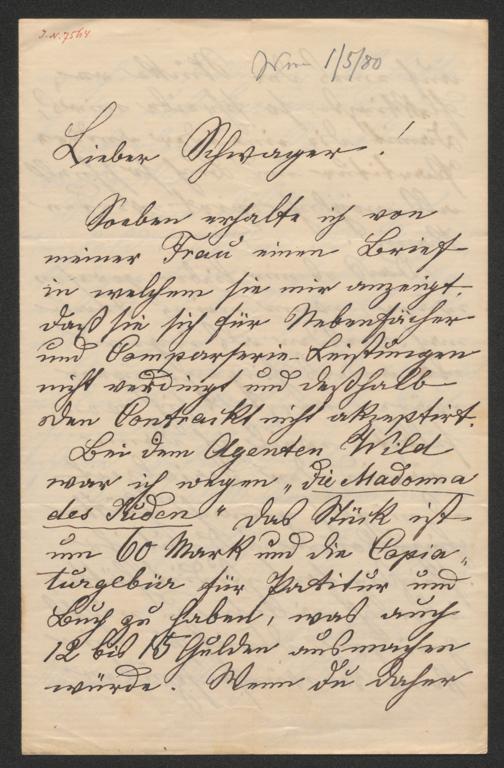 J.N. 7564
Wien 1/5/80
Lieber Schwager!
Soeben erhalte ich von
meiner Frau einen Brief
in welchem sie mir anzeigt,
daß sie sich für Nebenfächer
und Comparserie-Leistungen
nicht verdingt und deßhalb
den Contrackt nicht akzeptirt.
Bei dem Agenten Wild
war ich wegen „die Madonna
des Juden“ Das Stück ist
um 60 Mark und die Copia„
turgebür für Partitur und
Buch zu haben, was auch
12 bis 15 Gulden ausmachen
würde. Wenn du daher